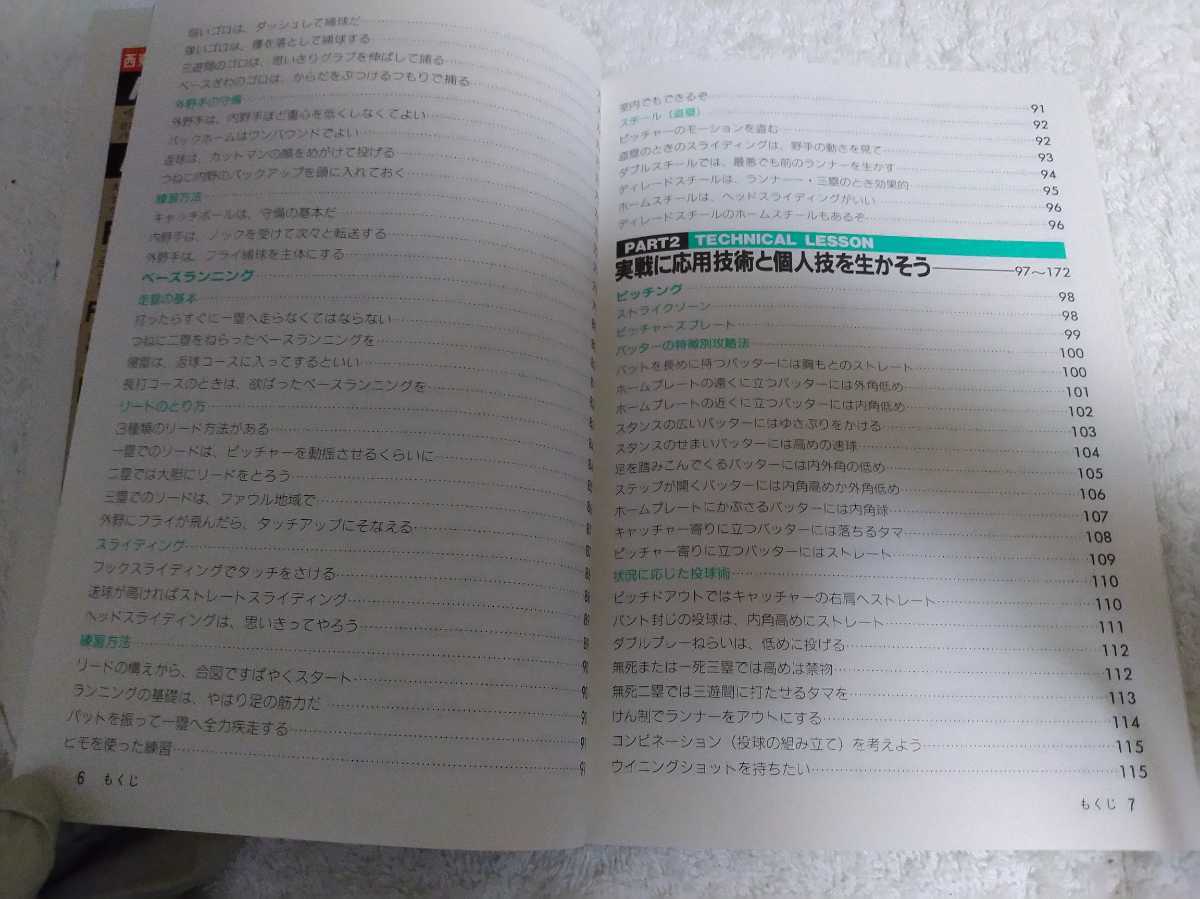 弱いゴロは、ダッシュして捕球だ
強いゴロは、腰を落として捕球する
三遊間のゴロは、思いきりグラブを伸ばして捕る
ベースぎわのゴロは、からだをぶつけるつもりで捕る
外野手の守備
外野手は、内野手ほど重心を低くしなくてよい
バックホームはワンバウンドでよい
返球は、カットマンの顔をめがけて投げる
つねに内野のバックアップを頭に入れておく
練習方法
キャッチボールは、守備の基本だ
内野手は、ノックを受けて次々と転送する
外野手は、フライ捕球を主体にする
ベースランニング
走塁の基本
打ったらすぐに一塁へ走らなくてはならない
つねに二塁をねらったベースランニングを
帰塁は、返球コースに入ってするといい
長打コースのときは、欲ばったベースランニングを
リードのとり方
3種類のリード方法がある
一塁でのリードは、ピッチャーを動揺させるくらいに
二塁では大胆にリードをとろう
三塁でのリードは、ファウル地域で
外野にフライが飛んだら、タッチアップにそなえる
スライディング
フックスライディングでタッチをさける
送球が高ければストレートスライディング
ヘッドスライディングは、思いきってやろう
練習方法
リードの構えから、合図ですばやくスタート
ランニングの基礎は、やはり足の筋力だ
バットを振って一塁へ全力疾走する 91
ヒモを使った練習 91
6 もくじ
室内でもできるぞ 91
スチール(盗塁) 92
ピッチャーのモーションを盗む 92
盗塁のときのスライディングは、野手の動きを見て 93
ダブルスチールでは、最悪でも前のランナーを生かす 94
ディレードスチールは、ランナー一・三塁のとき効果的 95
ホームスチールは、ヘッドスライディングがいい 96
ディレードスチールのホームスチールもあるぞ 96
PART2 TECHNICAL LESSON
実戦に応用技術と個人技を生かそう 97〜172
ピッチング 98
ストライクゾーン 98
ピッチャーズプレート 99
バッターの特徴別攻略法 100
バットを長めに持つバッターには胸もとのストレート 100
ホームプレートの遠くに立つバッターには外角低め 101
ホームプレートの近くに立つバッターには内角低め 102
スタンスの広いバッターにはゆさぶりをかける 103
スタンスのせまいバッターには高めの速球 104
足を踏みこんでくるバッターには内外角の低め 105
ステップが開くバッターには内角高めか外角低め 106
ホームプレートにかぶさるバッターには内角球 107
キャッチャー寄りに立つバッターには落ちるタマ 108
ピッチャー寄りに立つバッターにはストレート 109
状況に応じた投球術 110
ピッチドアウトではキャッチャーの右肩へストレート 110
バント封じの投球は、内角高めにストレート 111
ダブルプレーねらいは、低めに投げる 112
無死または一死三塁では高めは禁物 112
無死二塁では三遊間に打たせるタマを 113
けん制でランナーをアウトにする 114
コンビネーション(投球の組み立て)を考えよう 115
ウイニングショットを持ちたい 115
もくじ 7